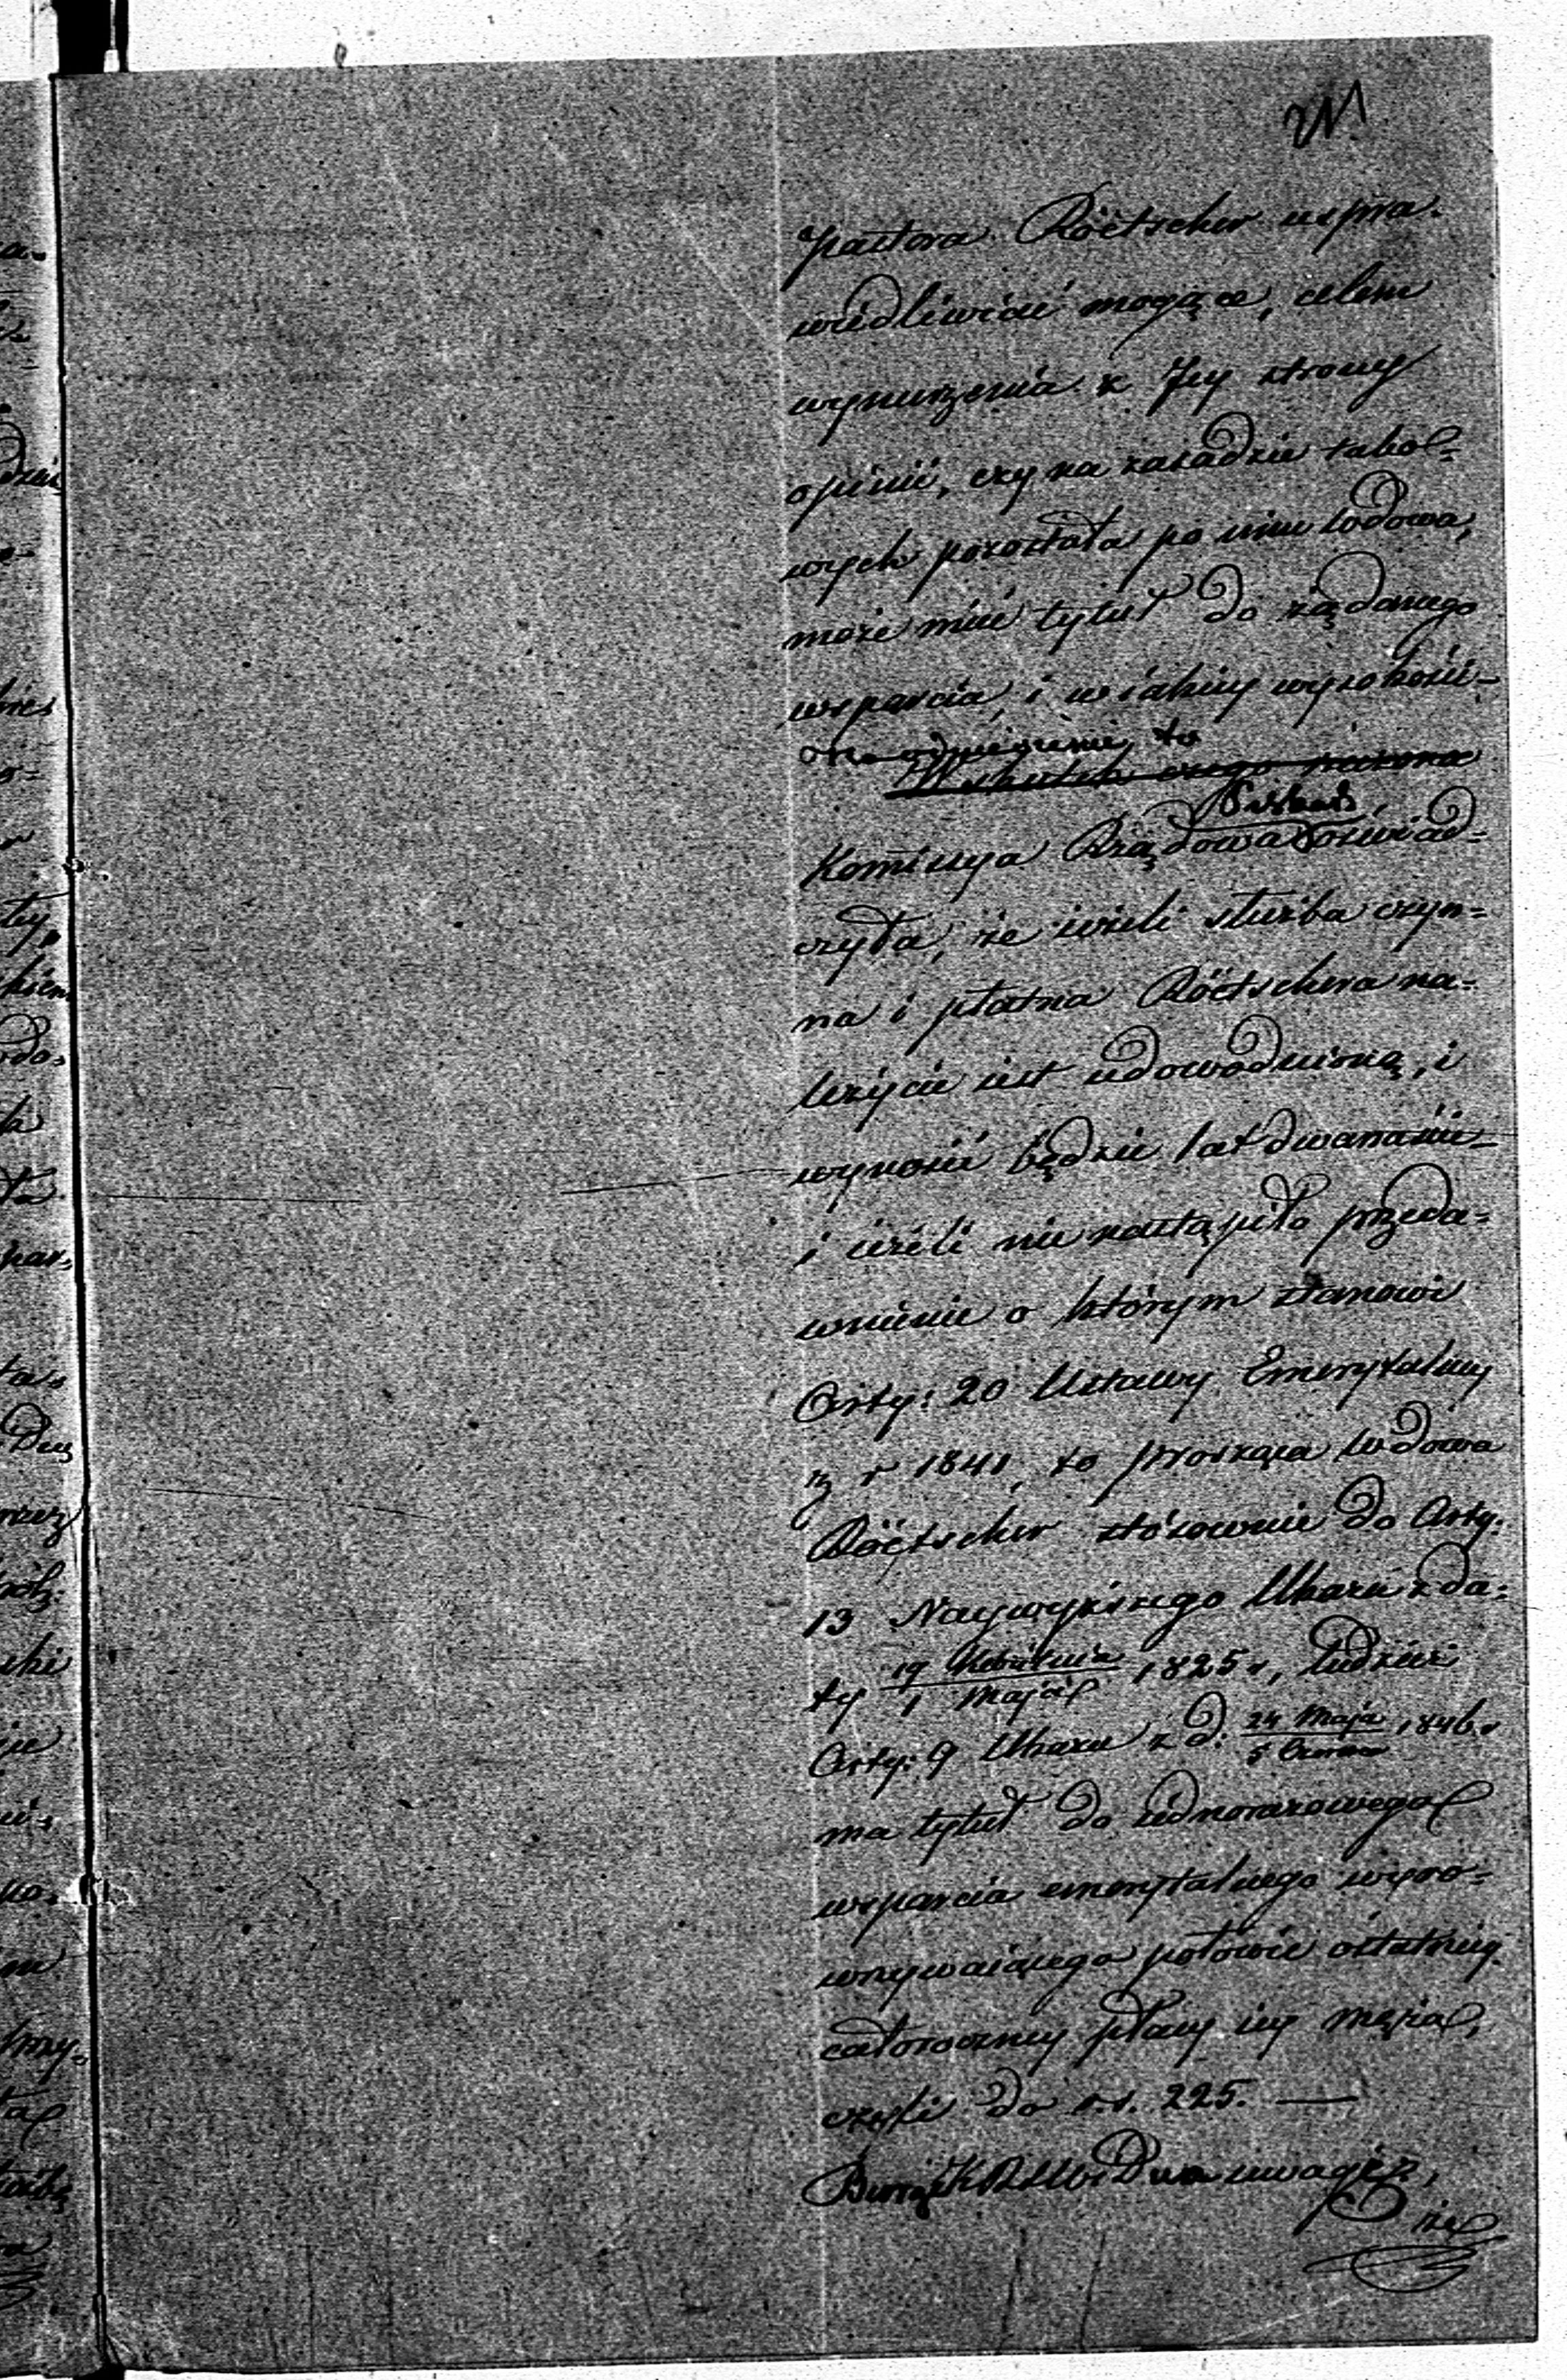 211
Pastora Röetscher uspra-
wiedliwiać mogące, celem
wynurzenia z Jey strony
opinii, czy na zasadzie takol=
wych pozostała po nim wdowa,
może mieć tytuł do żądanego
wsparcia, i w iakiey wysokości –
W skutek czego
Skarbu
Kommissya Rządowa oświad=
czyła, że ieżeli służba czyn=
na i płatna Röetschera na=
leżycie iest udowodnioną, i
wynosić będzie lat dwanaście –
i ieżeli nie nastąpiło przeda=
wnienie o którym stanowi
Arty: 20 Ustawy Emerytalney
z r 1841, to prosząca wdowa
Röetscher stósownie do Arty:
13 Naywyższego Ukazu z da=
ty 19 Kwietnia / 1 Maja 1825 r, tudzież
Arty: 9 Ukazu z d. 24 Maja / 5 Czerwca 1846 r
ma tytuł do iednorazowego
wsparcia emerytalnego wyro=
wnywaiącego połowie ostatniey
całoroczney płacy iey męża,
czyli do rs. 225. —
Biorąc Dua uwagę,
że